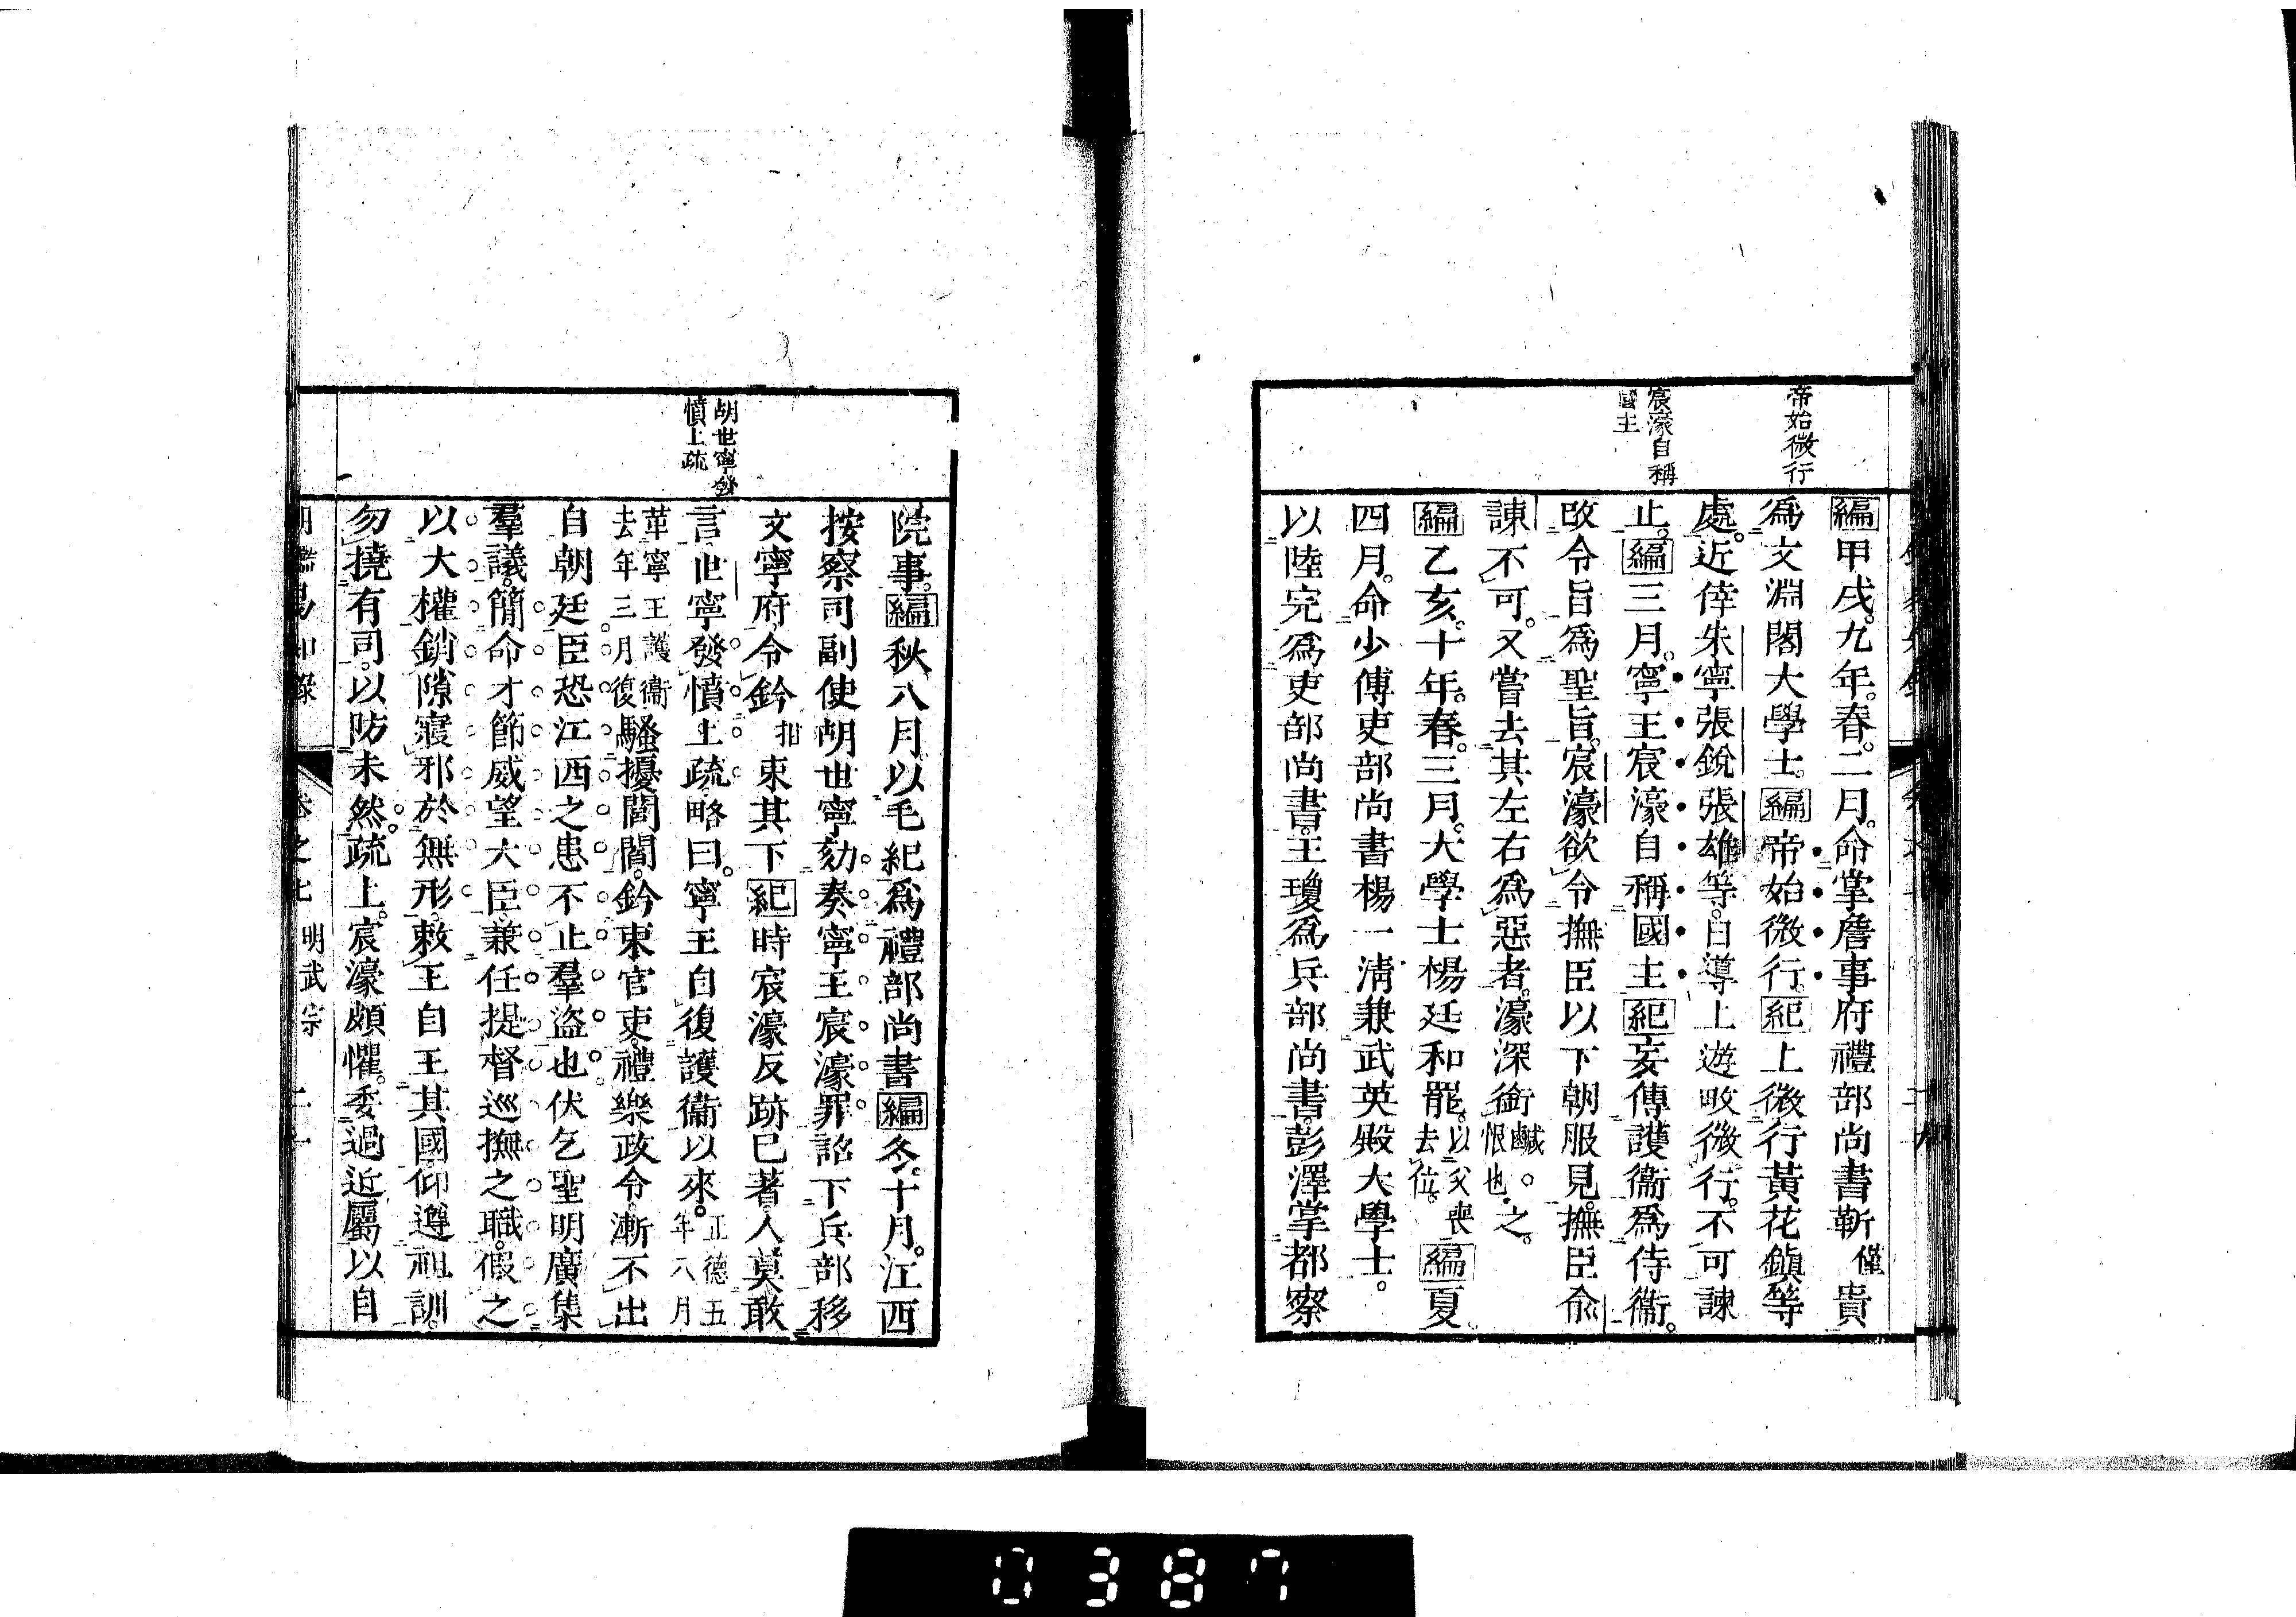 帝始微行
宸濠自稱
國主
編甲戌。九年。春。二月。命掌詹事府禮部尚書靳僅貴
爲文淵閣大學士。編帝始微行。紀上微行黃花鎮等
處。近倖朱寧張銳張雄等。日導上遊畋微行。不可諫
止。編三月。寧王宸濠自稱國主紀妄傳護衞爲侍衞。
改令旨爲聖旨。宸濠欲令撫臣以下朝服見。撫臣俞
諫不可。又嘗去其左右爲惡者。濠深銜鹹。恨也。之。
編乙亥。十年。春。三月。大學士楊廷和罷。以父喪去位。編夏
四月。命少傅吏部尚書楊一淸兼武英殿大學士。
以陸完爲吏部尚書。王瓊爲兵部尚書。彭澤掌都察
胡世寧發
憤上疏
院事。編秋八月。以毛紀爲禮部尚書編冬。十月。江西
按察司副使胡世寧劾奏寧王宸濠罪。詔下兵部移
文寧府令鈐拑束其下紀時宸濠反跡已著。人莫敢
言。世寧發憤上疏。略曰。寧王自復護衞以來。正德五年八月
革寧王護衞去年三月復騷擾閭閻。鈐束官吏。禮樂政令漸不出
自朝廷。臣恐江西之患不止羣盜也伏乞聖明廣集
羣議。簡命才節威望大臣。兼任提督巡撫之職。假之
以大權銷隙寢邪於無形。敕王自王其國仰遵祖訓。
勿撓有司。以防未然。疏上。宸濠頗懼。委過近屬以自
明武宗
0387